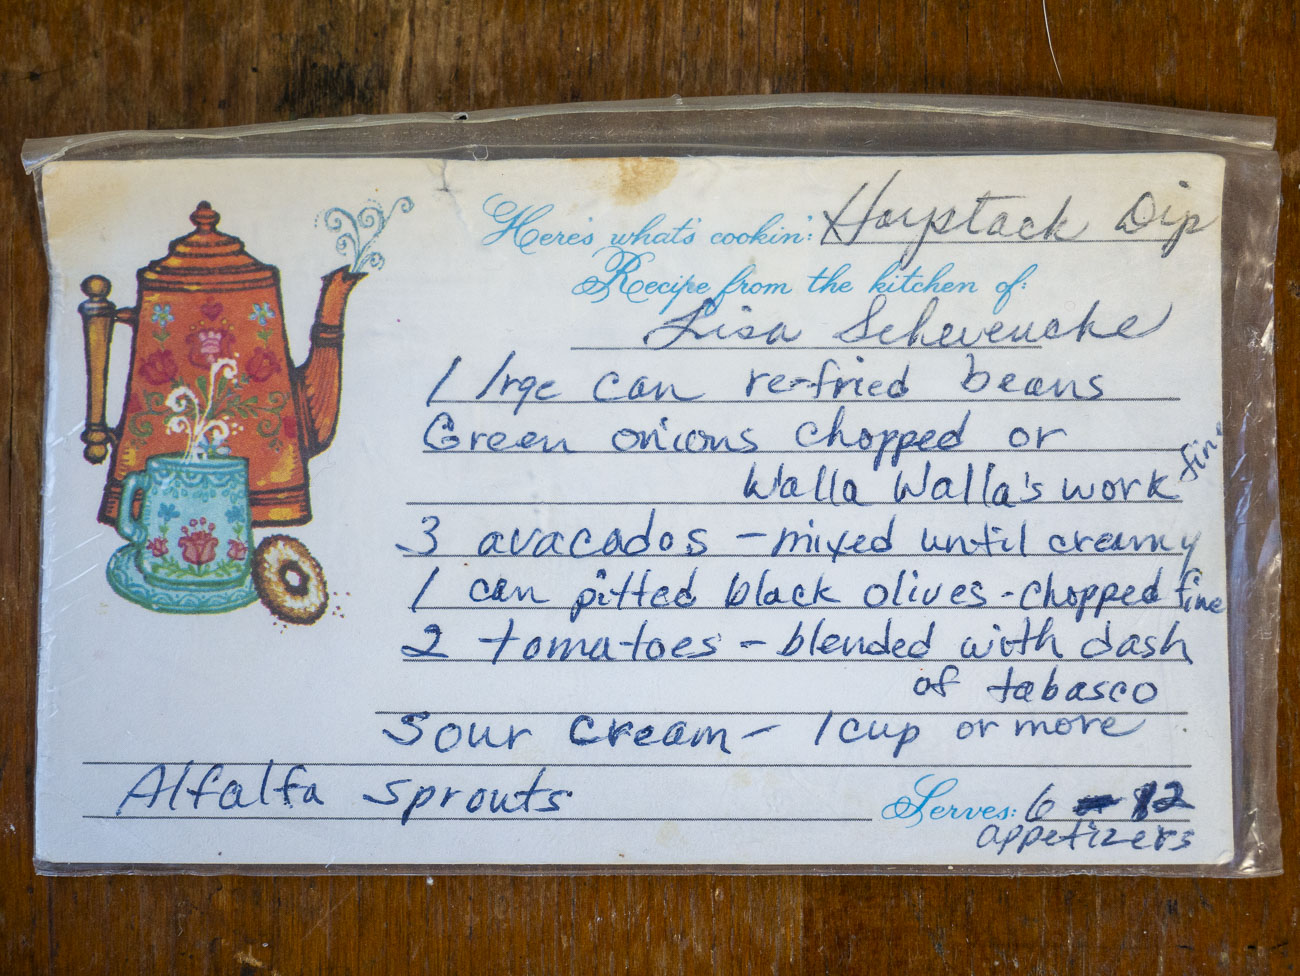 Here's what's cookin': Haystack Dip
Recipe from the kitchen of:
Lisa Scheveucke
1 lrge can re-fried beans
Green onions chopped or
Walla Walla's work fine
3 avacados - mixed until creamy
1 can pitted black olives - chopped fine
2 tomatoes - blended with dash
of tabasco
Sour cream - 1 cup or more
Alfalfa sprouts
Serves: 6 - 12
appetizers